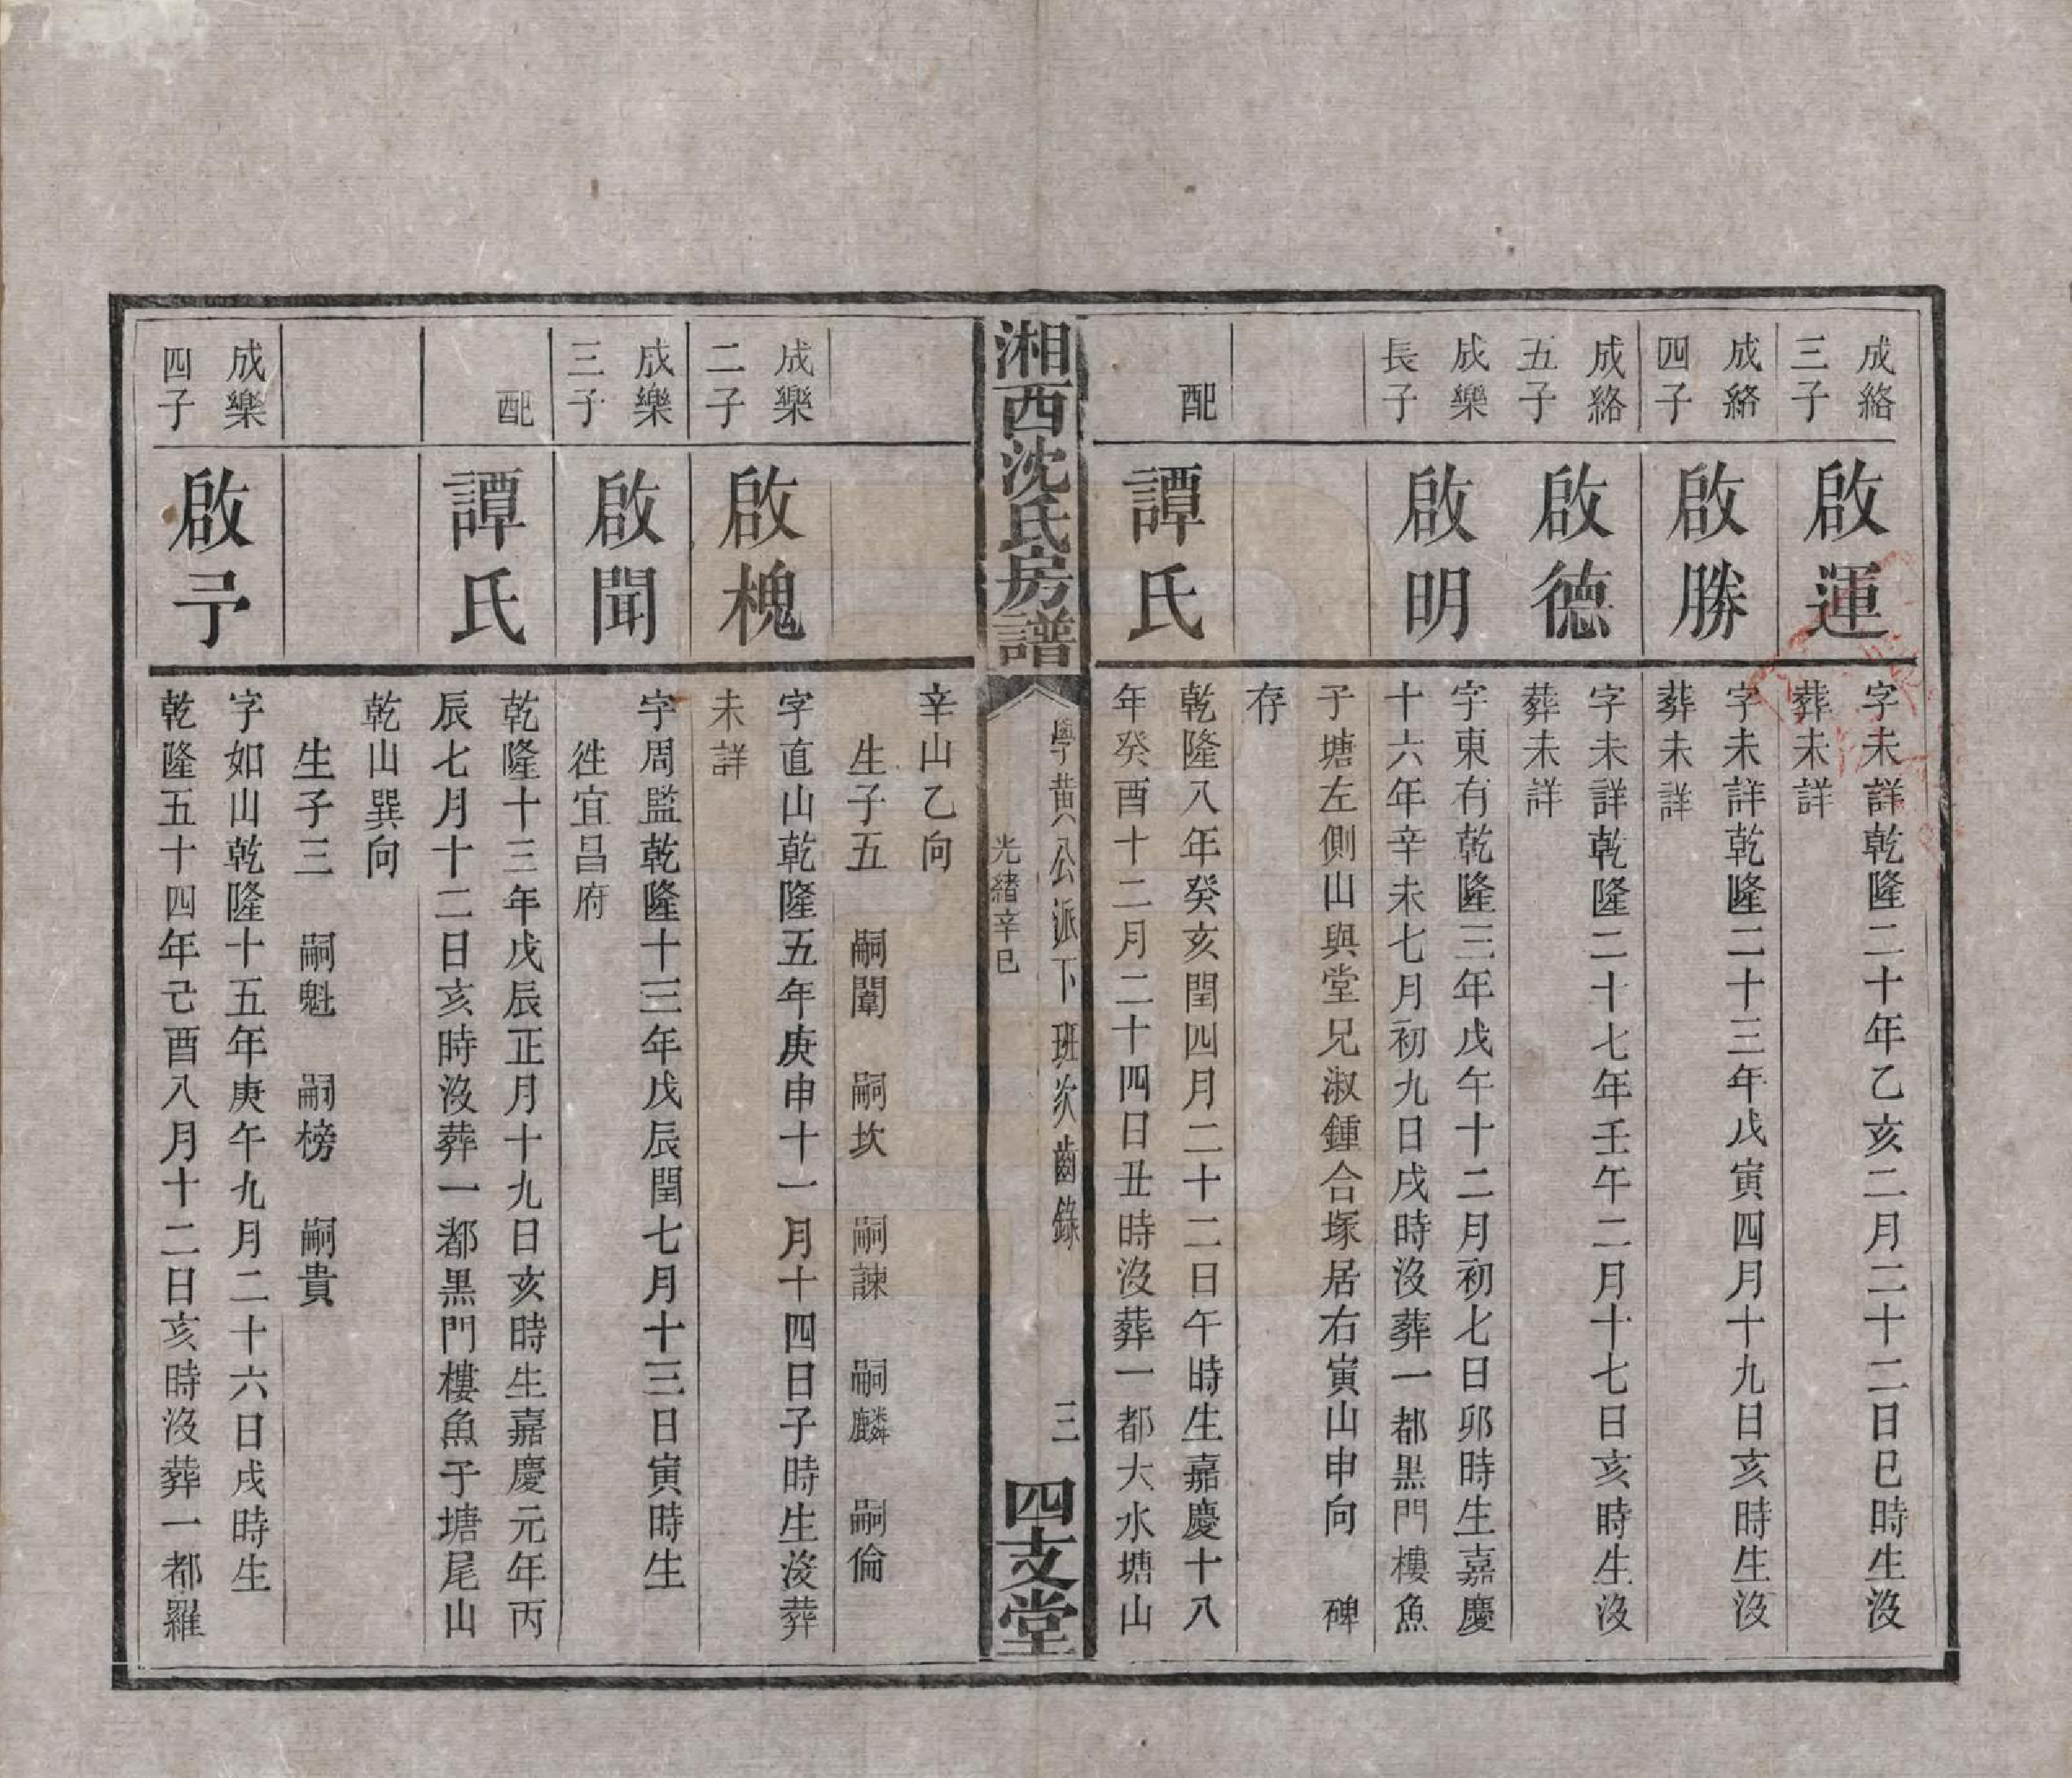 成絡
三子
啟運
字未詳乾隆二十年乙亥二月二十二日巳時生沒
葬未詳
成絡
四子
啟勝
字未詳乾隆二十三年戊寅四月十九日亥時生沒
葬未詳
成絡
五子
啟德
字未詳乾隆二十七年壬午二月十七日亥時生沒
葬未詳
成樂
長子
啟明
字東有乾隆三年戊午十二月初七日卯時生嘉慶
十六年辛未七月初九日戌時沒葬一都黑門樓魚
子塘左側山與堂兄淑鍾合塚居右寅山申向 碑
存
配
譚氏
乾隆八年癸亥閏四月二十二日午時生嘉慶十八
年癸酉十二月二十四日丑時沒葬一都大水塘山
湘西沈氏房譜
學黄公派下班次齒錄
光緒辛巳
三
四支堂
辛山乙向
生子五 嗣闈 嗣坎 嗣諫 嗣麟 嗣倫
成樂
二子
啟槐
字直山乾隆五年庚申十一月十四日子時生沒葬
未詳
成樂
三子
啟聞
字周監乾隆十三年戊辰閏七月十三日寅時生
徃宜昌府
配
譚氏
乾隆十三年戊辰正月十九日亥時生嘉慶元年丙
辰七月十二日亥時沒葬一都黑門樓魚子塘尾山
乾山巽向
生子三 嗣魁 嗣榜 嗣貴
成樂
四子
啟予
字如山乾隆十五年庚午九月二十六日戌時生
乾隆五十四年己酉八月十二日亥時沒葬一都羅